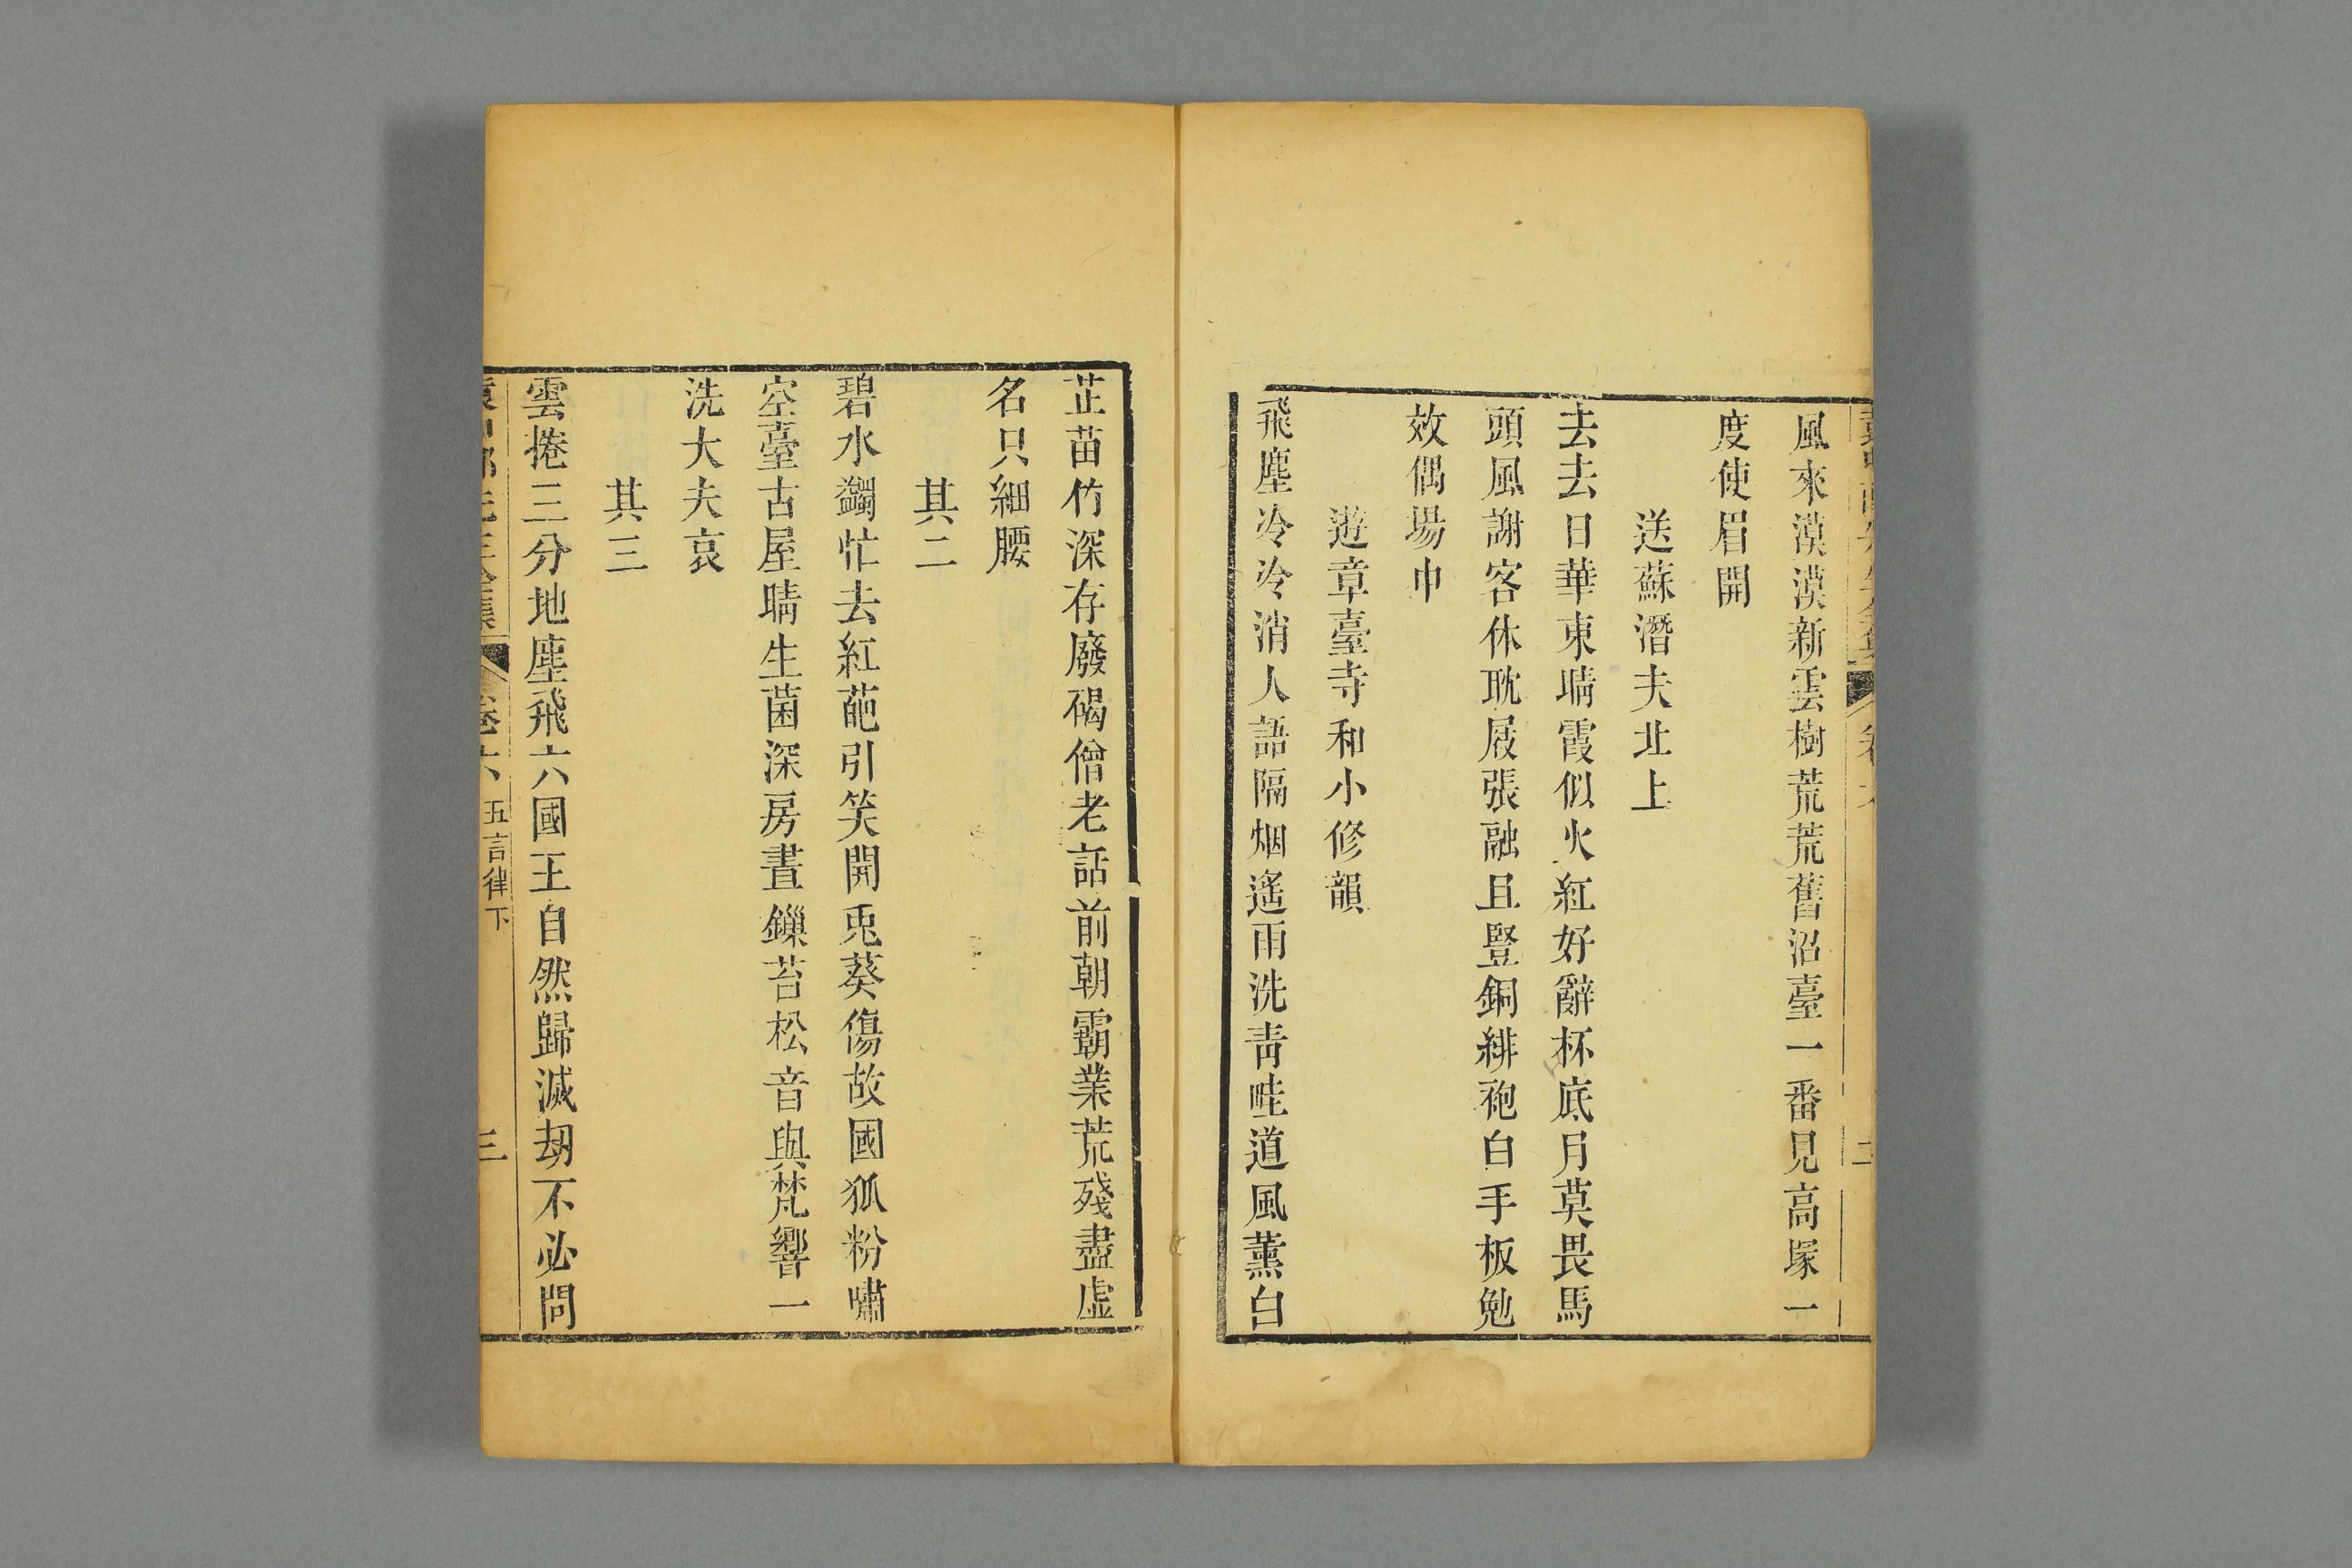 風來漠漠新雲樹荒荒舊沼臺一番見高塚一
度使眉開
送蘇潛夫北上
去去日華東晴霞似火紅好辭杯底月莫畏馬
頭風謝客休耽屐張融且豎銅緋袍白手板勉
效偶場巾
遊章臺寺和小修韻
飛塵冷冷消人語隔烟遙雨洗靑畦道風薰白
芷苗竹深存廢碣僧老話前朝霸業荒殘盡虛
名只細腰
其二
碧水蠲忙去紅葩引笑開兎葵傷故國狐粉嘯
空臺古屋晴生菌深房晝鏁苔松音與梵響一
洗大夫哀
其三
雲捲三分地塵飛六國王自然歸滅刼不必問
卷六 五言律下 三